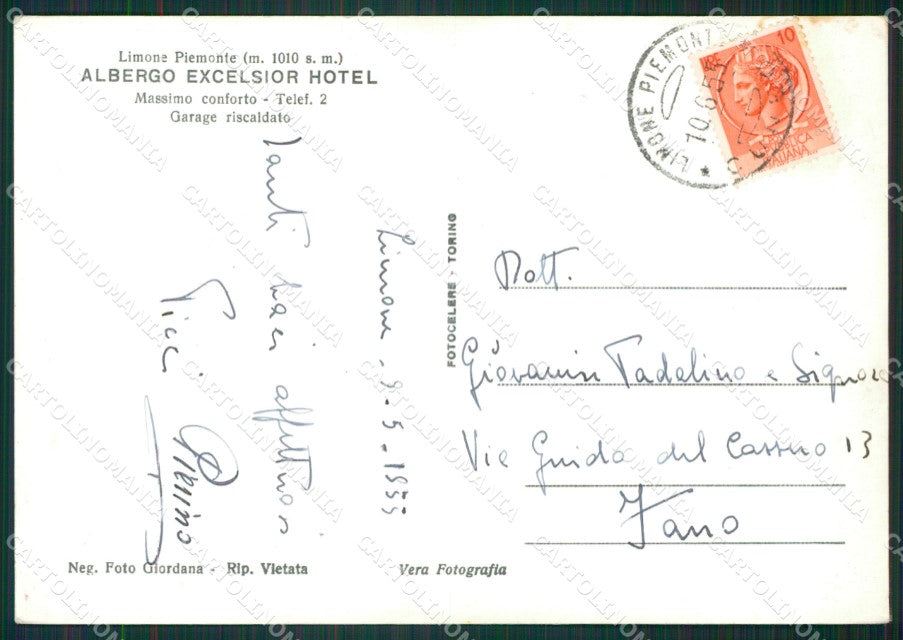 Limone Piemonte (m. 1010 s. m.)
ALBERGO EXCELSIOR HOTEL
Massimo conforto - Telef. 2
Garage riscaldato
Tanti baci affettuosi
Pierino
Limone - 9-5-1955
FOTOCELERE - TORINO
LIMONE PIEMONTE
10
REPUBBLICA
ITALIANA
Dott.
Giovanni Tadolino e Signora
Via Guido del Cassero 13
Fano
Neg. Foto Giordana - Rip. Vietata
Vera Fotografia
CARTOLINOMANIA